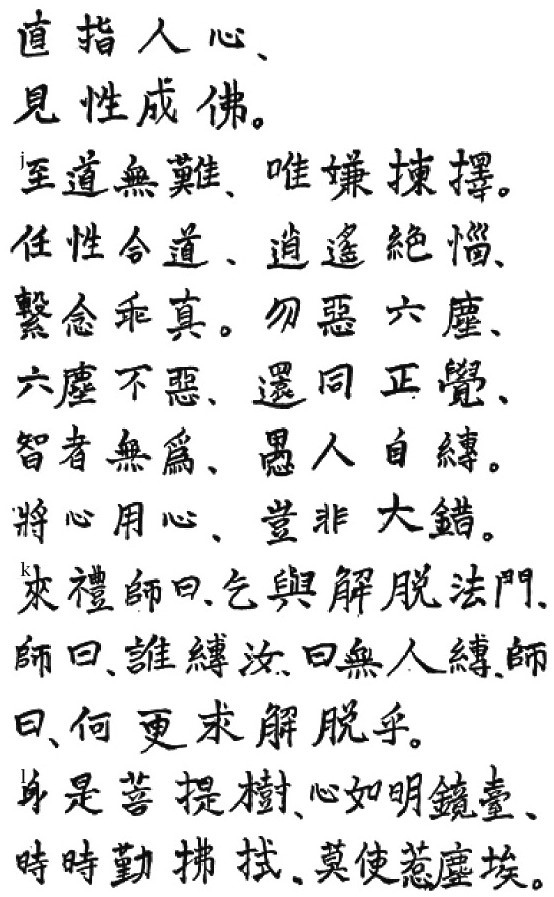 直指人心、
見性成佛。
j至道無難、唯嫌揀擇。
任性合道、逍遙絕惱、
繫念乖真。勿惡六塵、
六塵不惡、還同正覺、
智者無為、愚人自縛。
將心用心、豈非大錯。
k來禮師曰、乞與解脫法門、
師曰、誰縛汝、曰無人縛、師
曰、何更求解脫乎。
l身是菩提樹、心如明鏡臺、
時時勤拂拭、莫使惹塵埃。